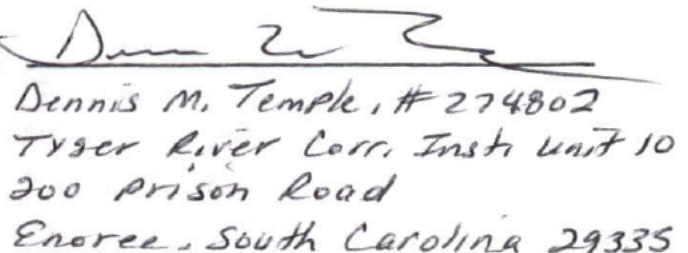 Dennis M. Temple, # 274802
Tyger River Corr. Inst. Unit 10
200 Prison Road
Enoree, South Carolina 29335